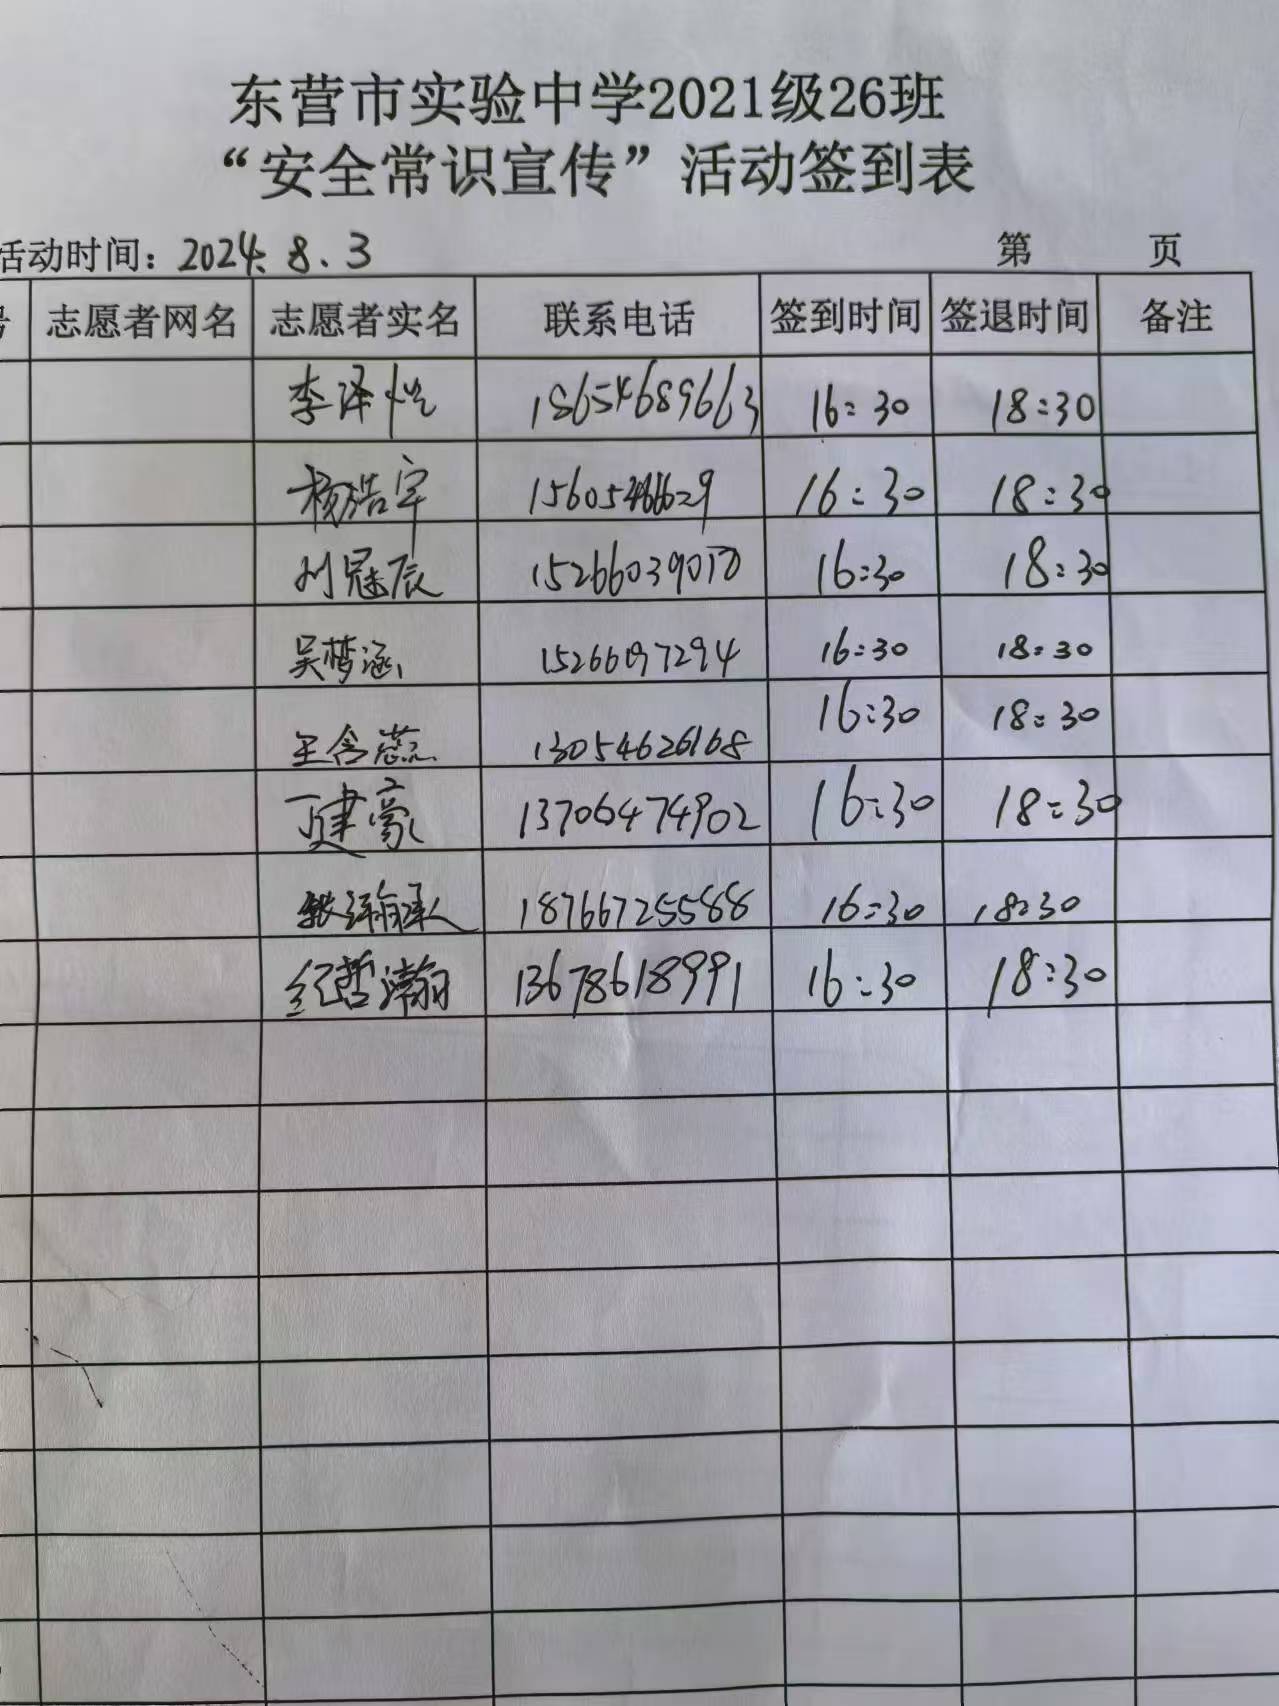 东营市实验中学2021级26班
“安全常识宣传”活动签到表
活动时间：2024.8.3 第 页
号 志愿者网名 志愿者实名 联系电话 签到时间 签退时间 备注
李泽恺 18654689663 16:30 18:30
杨浩宇 15605466629 16:30 18:30
刘冠辰 15266039010 16:30 18:30
吴梦涵 15266097294 16:30 18:30
王含蕊 13054626168 16:30 18:30
丁建豪 13706474902 16:30 18:30
18766725588 16:30 18:30
纪哲瀚 13678618991 16:30 18:30